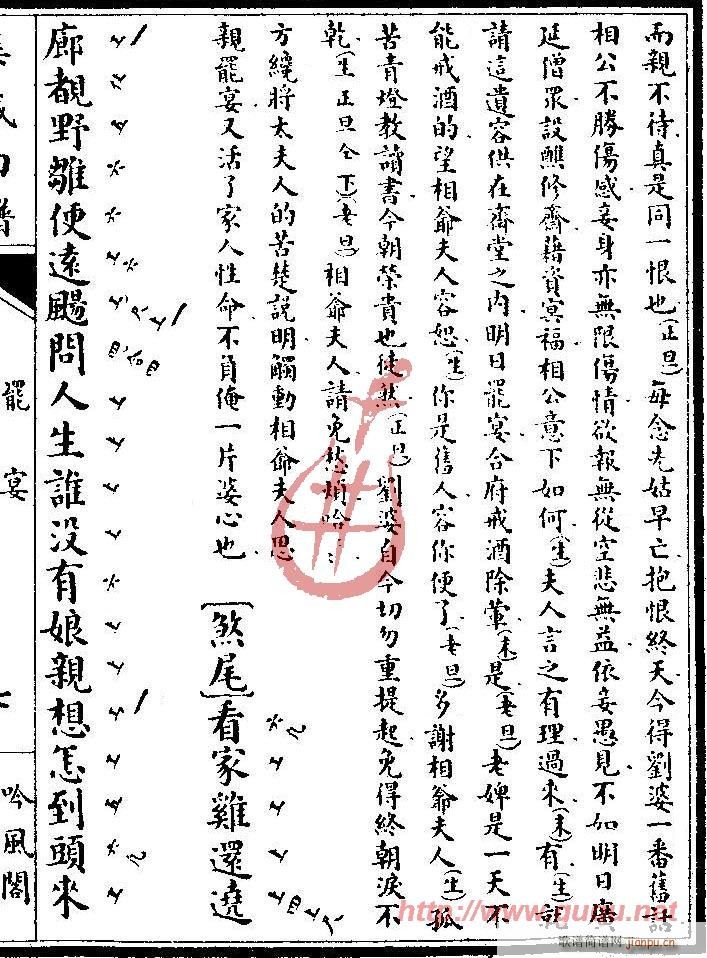 而親不待真是同一恨也(正旦)每念先姑早亡抱恨終天今得劉婆一番舊話
相公不勝傷感妾身亦無限傷情欲報無從空悲無益依妾愚見不如明日廣
延僧眾設醮修齋藉資冥福相公意下如何(生)夫人言之有理過來(末)有(生)
請這遺容供在齋堂之內明日罷宴合府戒酒除葷(末)是(老旦)老婢是一天不
能戒酒的望相爺夫人容恕(生)你是舊人容你便了(老旦)多謝相爺夫人(生)孤
苦青燈教讀書今朝榮貴也徒然(正旦)劉婆自今切勿重提起免得終朝淚不
乾(生正旦仝下)(老旦)相爺夫人請免愁煩哈哈
方纔將太夫人的苦楚說明觸動相爺夫人思
親罷宴又活了家人性命不負俺一片婆心也 [煞尾]看家雞還遶
廊覩野雛便遠颺問人生誰沒有娘親想怎到頭來
罷宴
吟風閣
http://www.qupu.net
歌谱简谱网
jianpu.cn